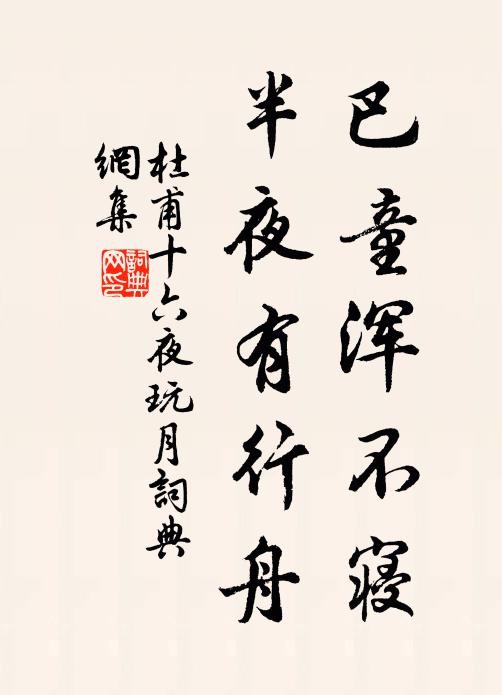 巴童浑不寝
半夜有行舟
杜甫十六夜玩月詞典
網集
詞典
网印